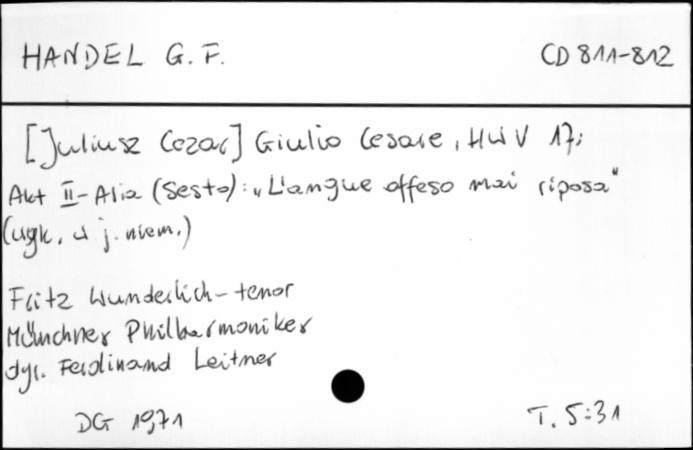 HANDEL G. F.
CD 811-812
[Juliusz Cezar] Giulio Cesare, HWV 17;
Akt II - Aria (Sesto): „L'angue offeso mai riposa"
(wyk. w j. niem.)
Fritz Wunderlich - tenor
Münchner Philharmoniker
dyr. Ferdinand Leitner
DG 1971
T. 5:31